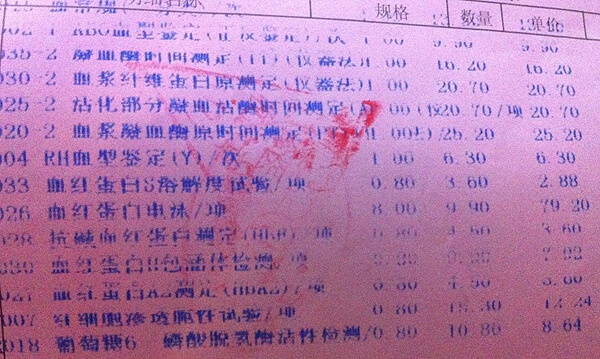 规格 数量 单价
ABO血型鉴定 /次 1.00 9.90 9.90
035-2 凝血酶时间测定(TT)(仪器法)1.00 16.20 16.20
030-2 血浆纤维蛋白原测定(仪器法)1.00 20.70 20.70
025-2 活化部分凝血活酶时间测定(A 1.00 (仪20.70/项 20.70
020-2 血浆凝血酶原时间测定(PT) 1.00 25.20 25.20
004 RH血型鉴定(Y)/次 1.00 6.30 6.30
033 血红蛋白S溶解度试验/项 0.80 3.60 2.88
026 血红蛋白电泳/项 8.00 9.90 79.20
028 抗碱血红蛋白测定(HbF)/项 0.80 4.50 3.60
血红蛋白H包涵体检测/项 7.92
027 血红蛋白A2测定(HbA2)/项 0.80 4.50 3.60
007 红细胞渗透脆性试验/项 0.80 15.30 12.24
018 葡萄糖6 磷酸脱氢酶活性检测/ 0.80 10.80 8.64